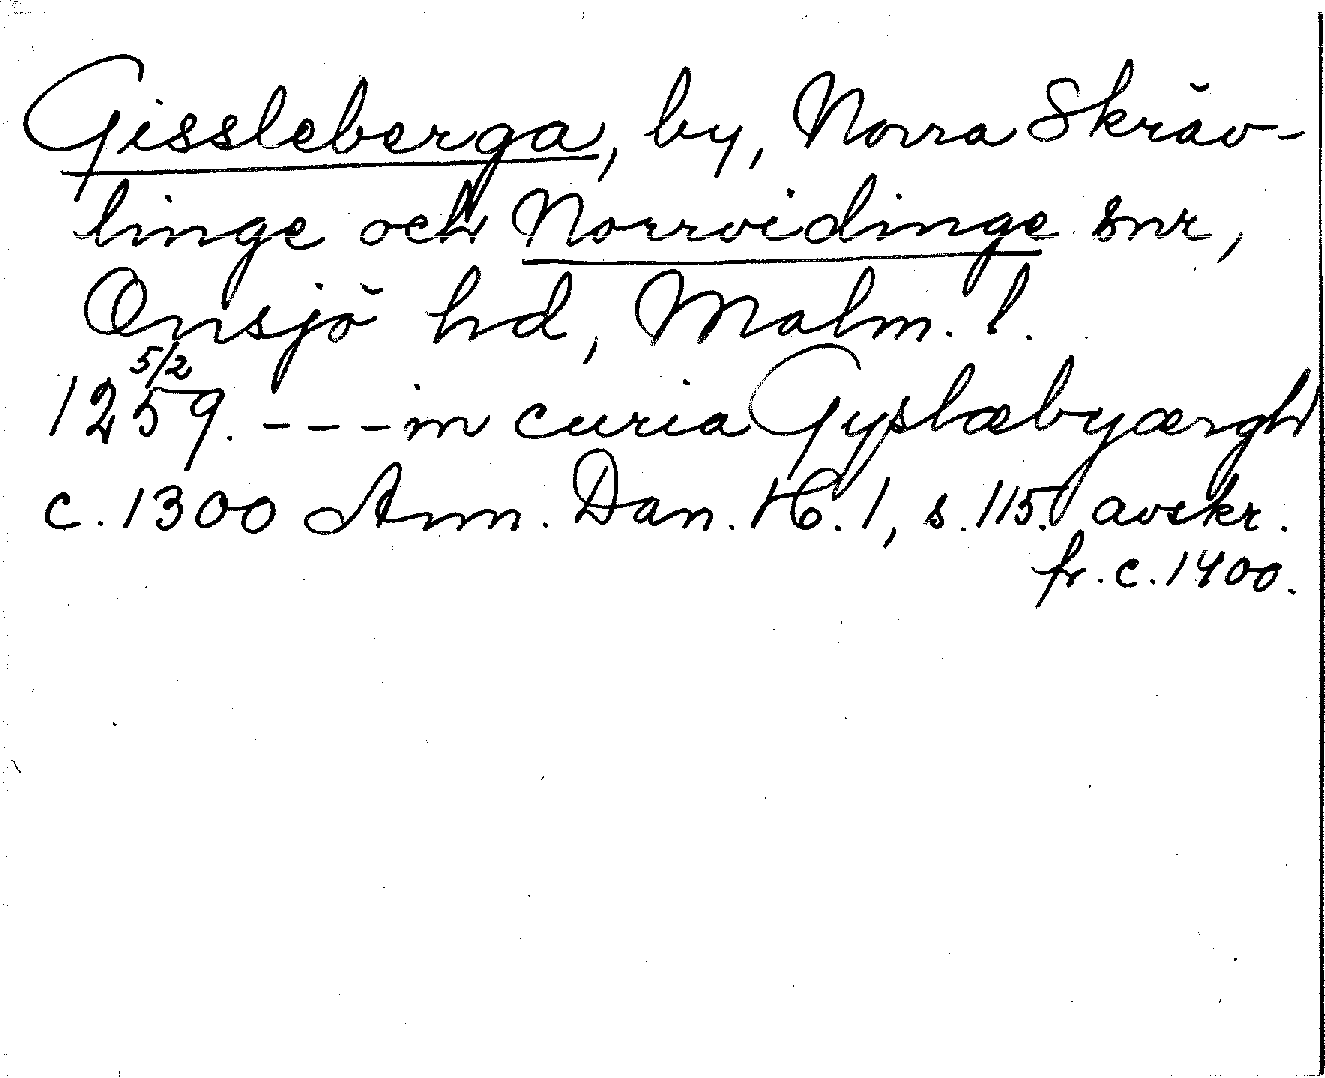 Gissleberga, by, Norra Skräv-
linge och Norrvidinge snr,
Onsjö hd, Malm. l.
1259 5/2. --- in curia Gyslæbyærgh
c. 1300 Ann. Dan. H. 1, s. 115. avskr.
fr. c. 1400.